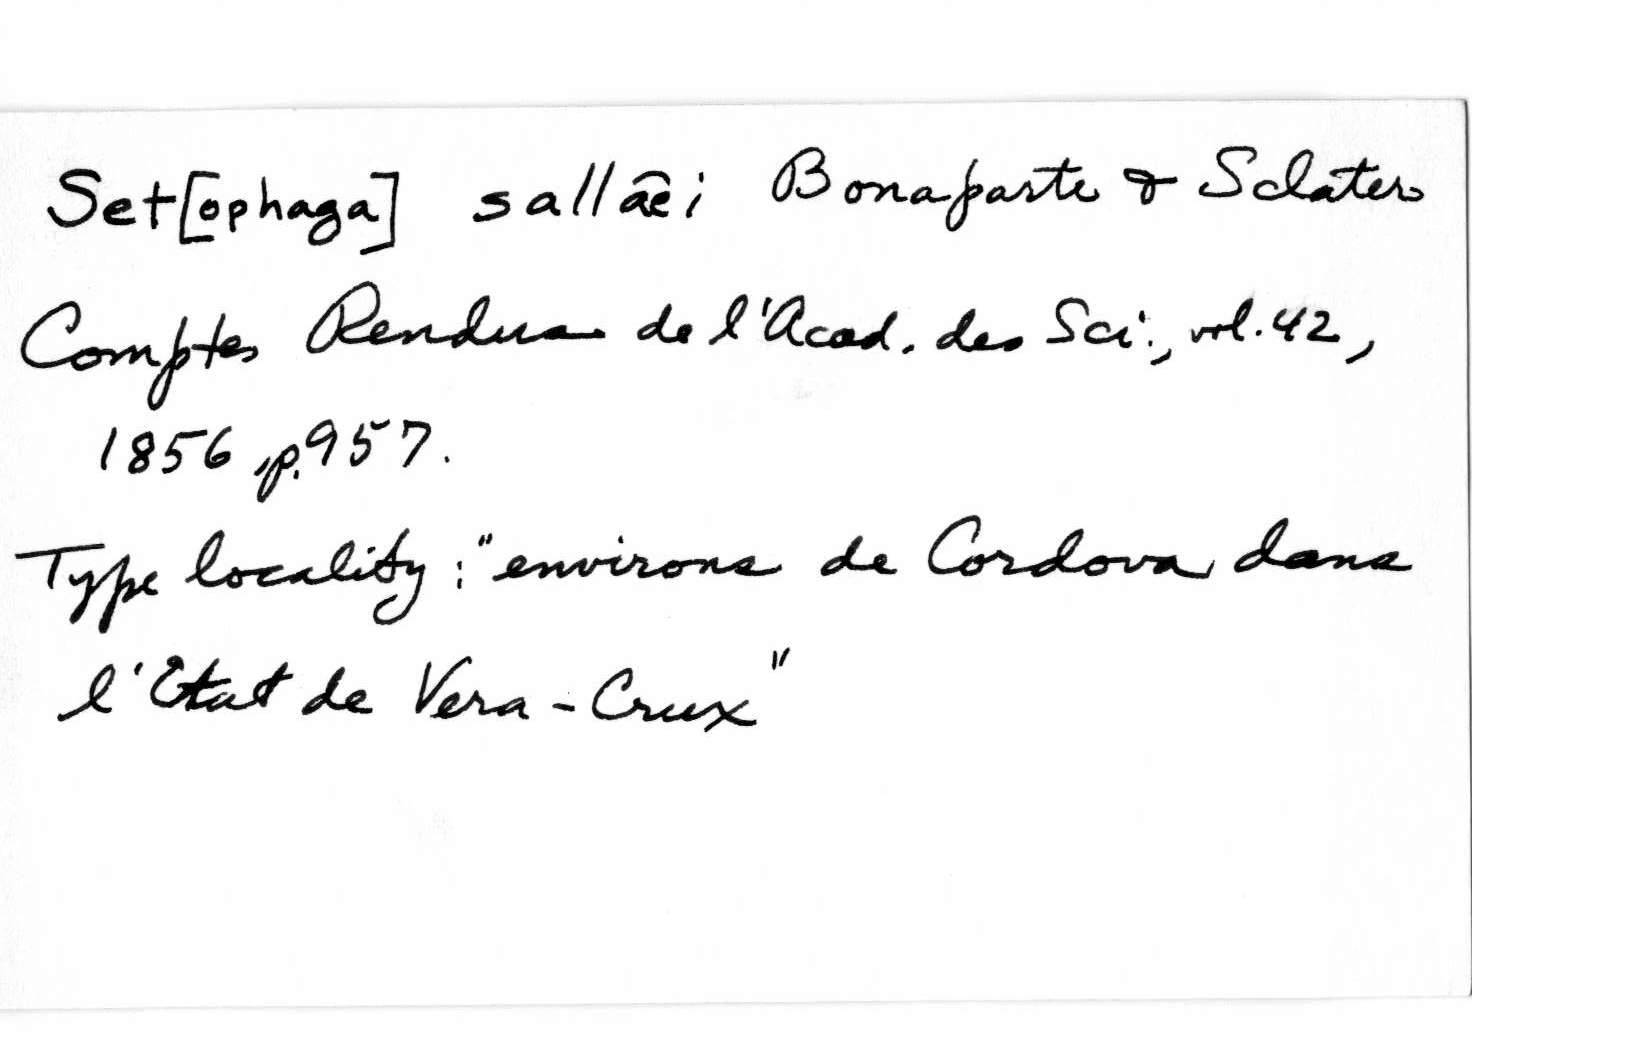 Set[ophaga] sallæi Bonaparte & Sclater
Comptes Rendus de l'Acad. des Sci., vol. 42,
1856, p. 957.
Type locality: "environs de Cordova dans
l'Etat de Vera-Crux"